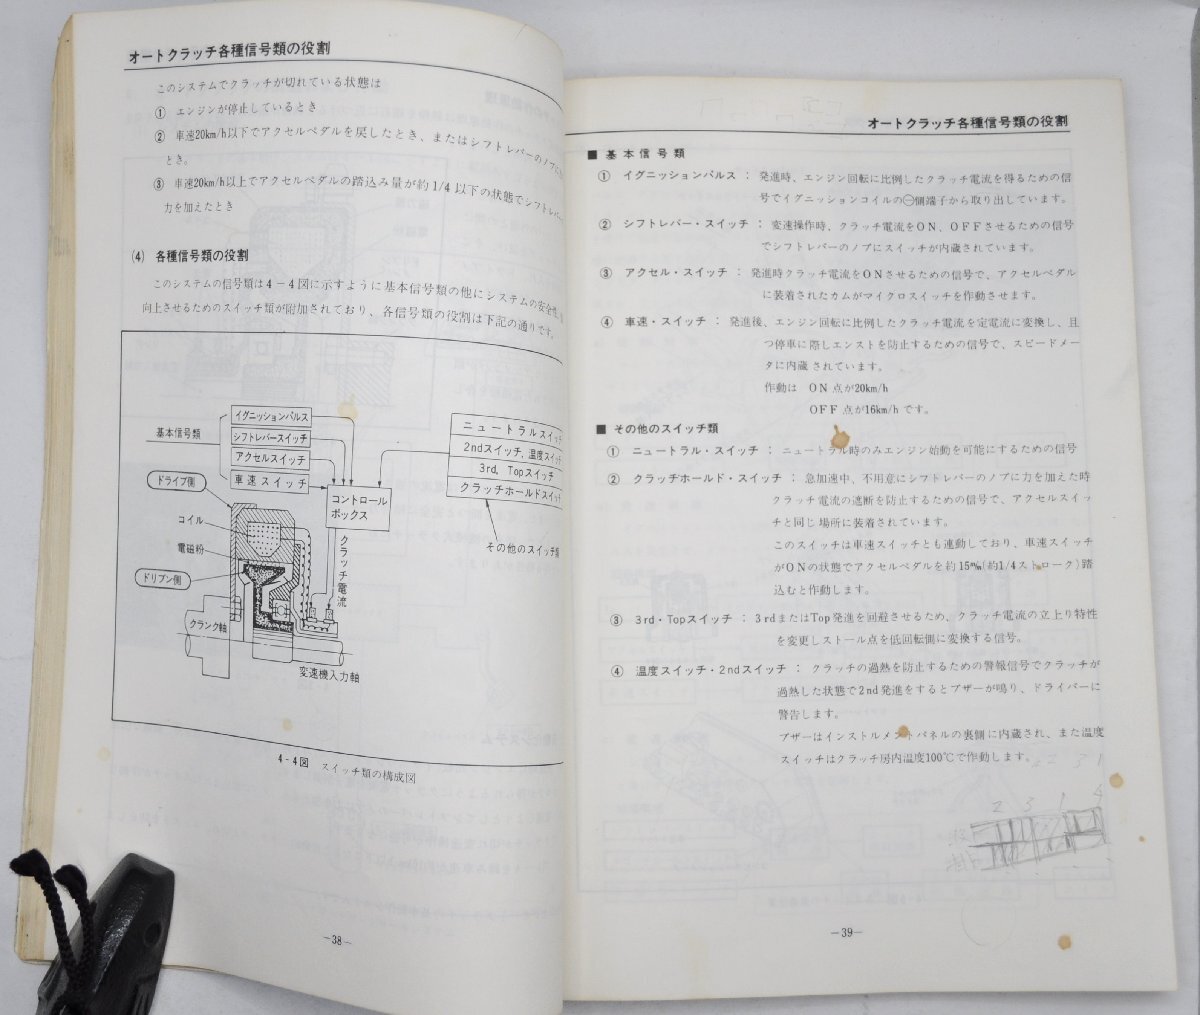 オートクラッチ各種信号類の役割
このシステムでクラッチが切れている状態は
① エンジンが停止しているとき
② 車速20km/h以下でアクセルペダルを戻したとき、またはシフトレバーのノブに
とき。
③ 車速20km/h以上でアクセルペダルの踏込み量が約1/4以下の状態でシフトレバー
力を加えたとき
(4) 各種信号類の役割
このシステムの信号類は4-4図に示すように基本信号類の他にシステムの安全性
向上させるためのスイッチ類が附加されており、各信号類の役割は下記の通りです。
イグニッションパルス
シフトレバースイッチ
アクセルスイッチ
車速スイッチ
基本信号類
ニュートラルスイッチ
2ndスイッチ、温度スイッチ
3rd、Topスイッチ
クラッチホールドスイッチ
コントロール
ボックス
その他のスイッチ類
ドライブ側
コイル
電磁粉
ドリブン側
クランク軸
クラッチ電流
変速機入力軸
4-4図 スイッチ類の構成図
-38-
オートクラッチ各種信号類の役割
■ 基本信号類
① イグニッションパルス : 発進時、エンジン回転に比例したクラッチ電流を得るための信
号でイグニッションコイルの㊀側端子から取り出しています。
② シフトレバー・スイッチ : 変速操作時、クラッチ電流をON、OFFさせるための信号
でシフトレバーのノブにスイッチが内蔵されています。
③ アクセル・スイッチ : 発進時クラッチ電流をONさせるための信号で、アクセルペダル
に装着されたカムがマイクロスイッチを作動させます。
④ 車速・スイッチ : 発進後、エンジン回転に比例したクラッチ電流を定電流に変換し、且
つ停車に際しエンストを防止するための信号で、スピードメー
タに内蔵されています。
作動は ON 点が20km/h
OFF 点が16km/h です。
■ その他のスイッチ類
① ニュートラル・スイッチ : ニュートラル時のみエンジン始動を可能にするための信号
② クラッチホールド・スイッチ : 急加速中、不用意にシフトレバーのノブに力を加えた時
クラッチ電流の遮断を防止するための信号で、アクセルスイッ
チと同じ場所に装着されています。
このスイッチは車速スイッチとも連動しており、車速スイッチ
がONの状態でアクセルペダルを約15㎜(約1/4ストローク)踏
込むと作動します。
③ 3rd・Topスイッチ : 3rdまたはTop発進を回避させるため、クラッチ電流の立上り特性
を変更しストール点を低回転側に変換する信号。
④ 温度スイッチ・2ndスイッチ : クラッチの過熱を防止するための警報信号でクラッチが
過熱した状態で2nd発進をするとブザーが鳴り、ドライバーに
警告します。
ブザーはインストルメントパネルの裏側に内蔵され、また温度
スイッチはクラッチ房内温度100℃で作動します。
2 3 1
-39-